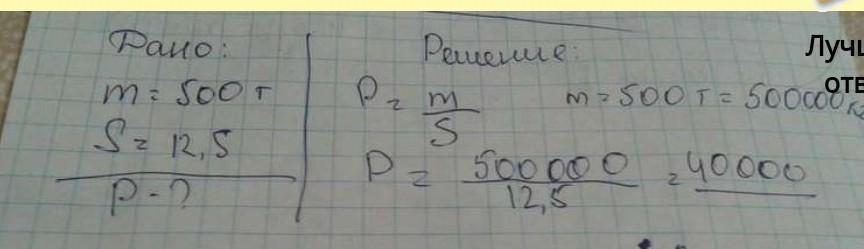 Дано:
m = 500 т
S = 12,5
P - ?
Решение:
P = m/S m = 500 т = 500000 кг
P = 500000/12,5 = 40000
Лучш
отв